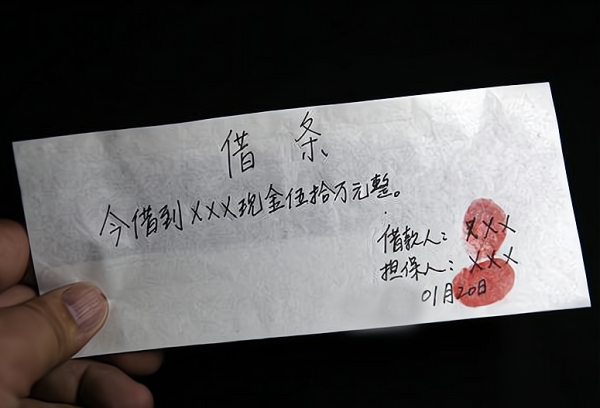 借 条
今借到XXX现金伍拾万元整。
借款人：XXX
担保人：XXX
01月20日